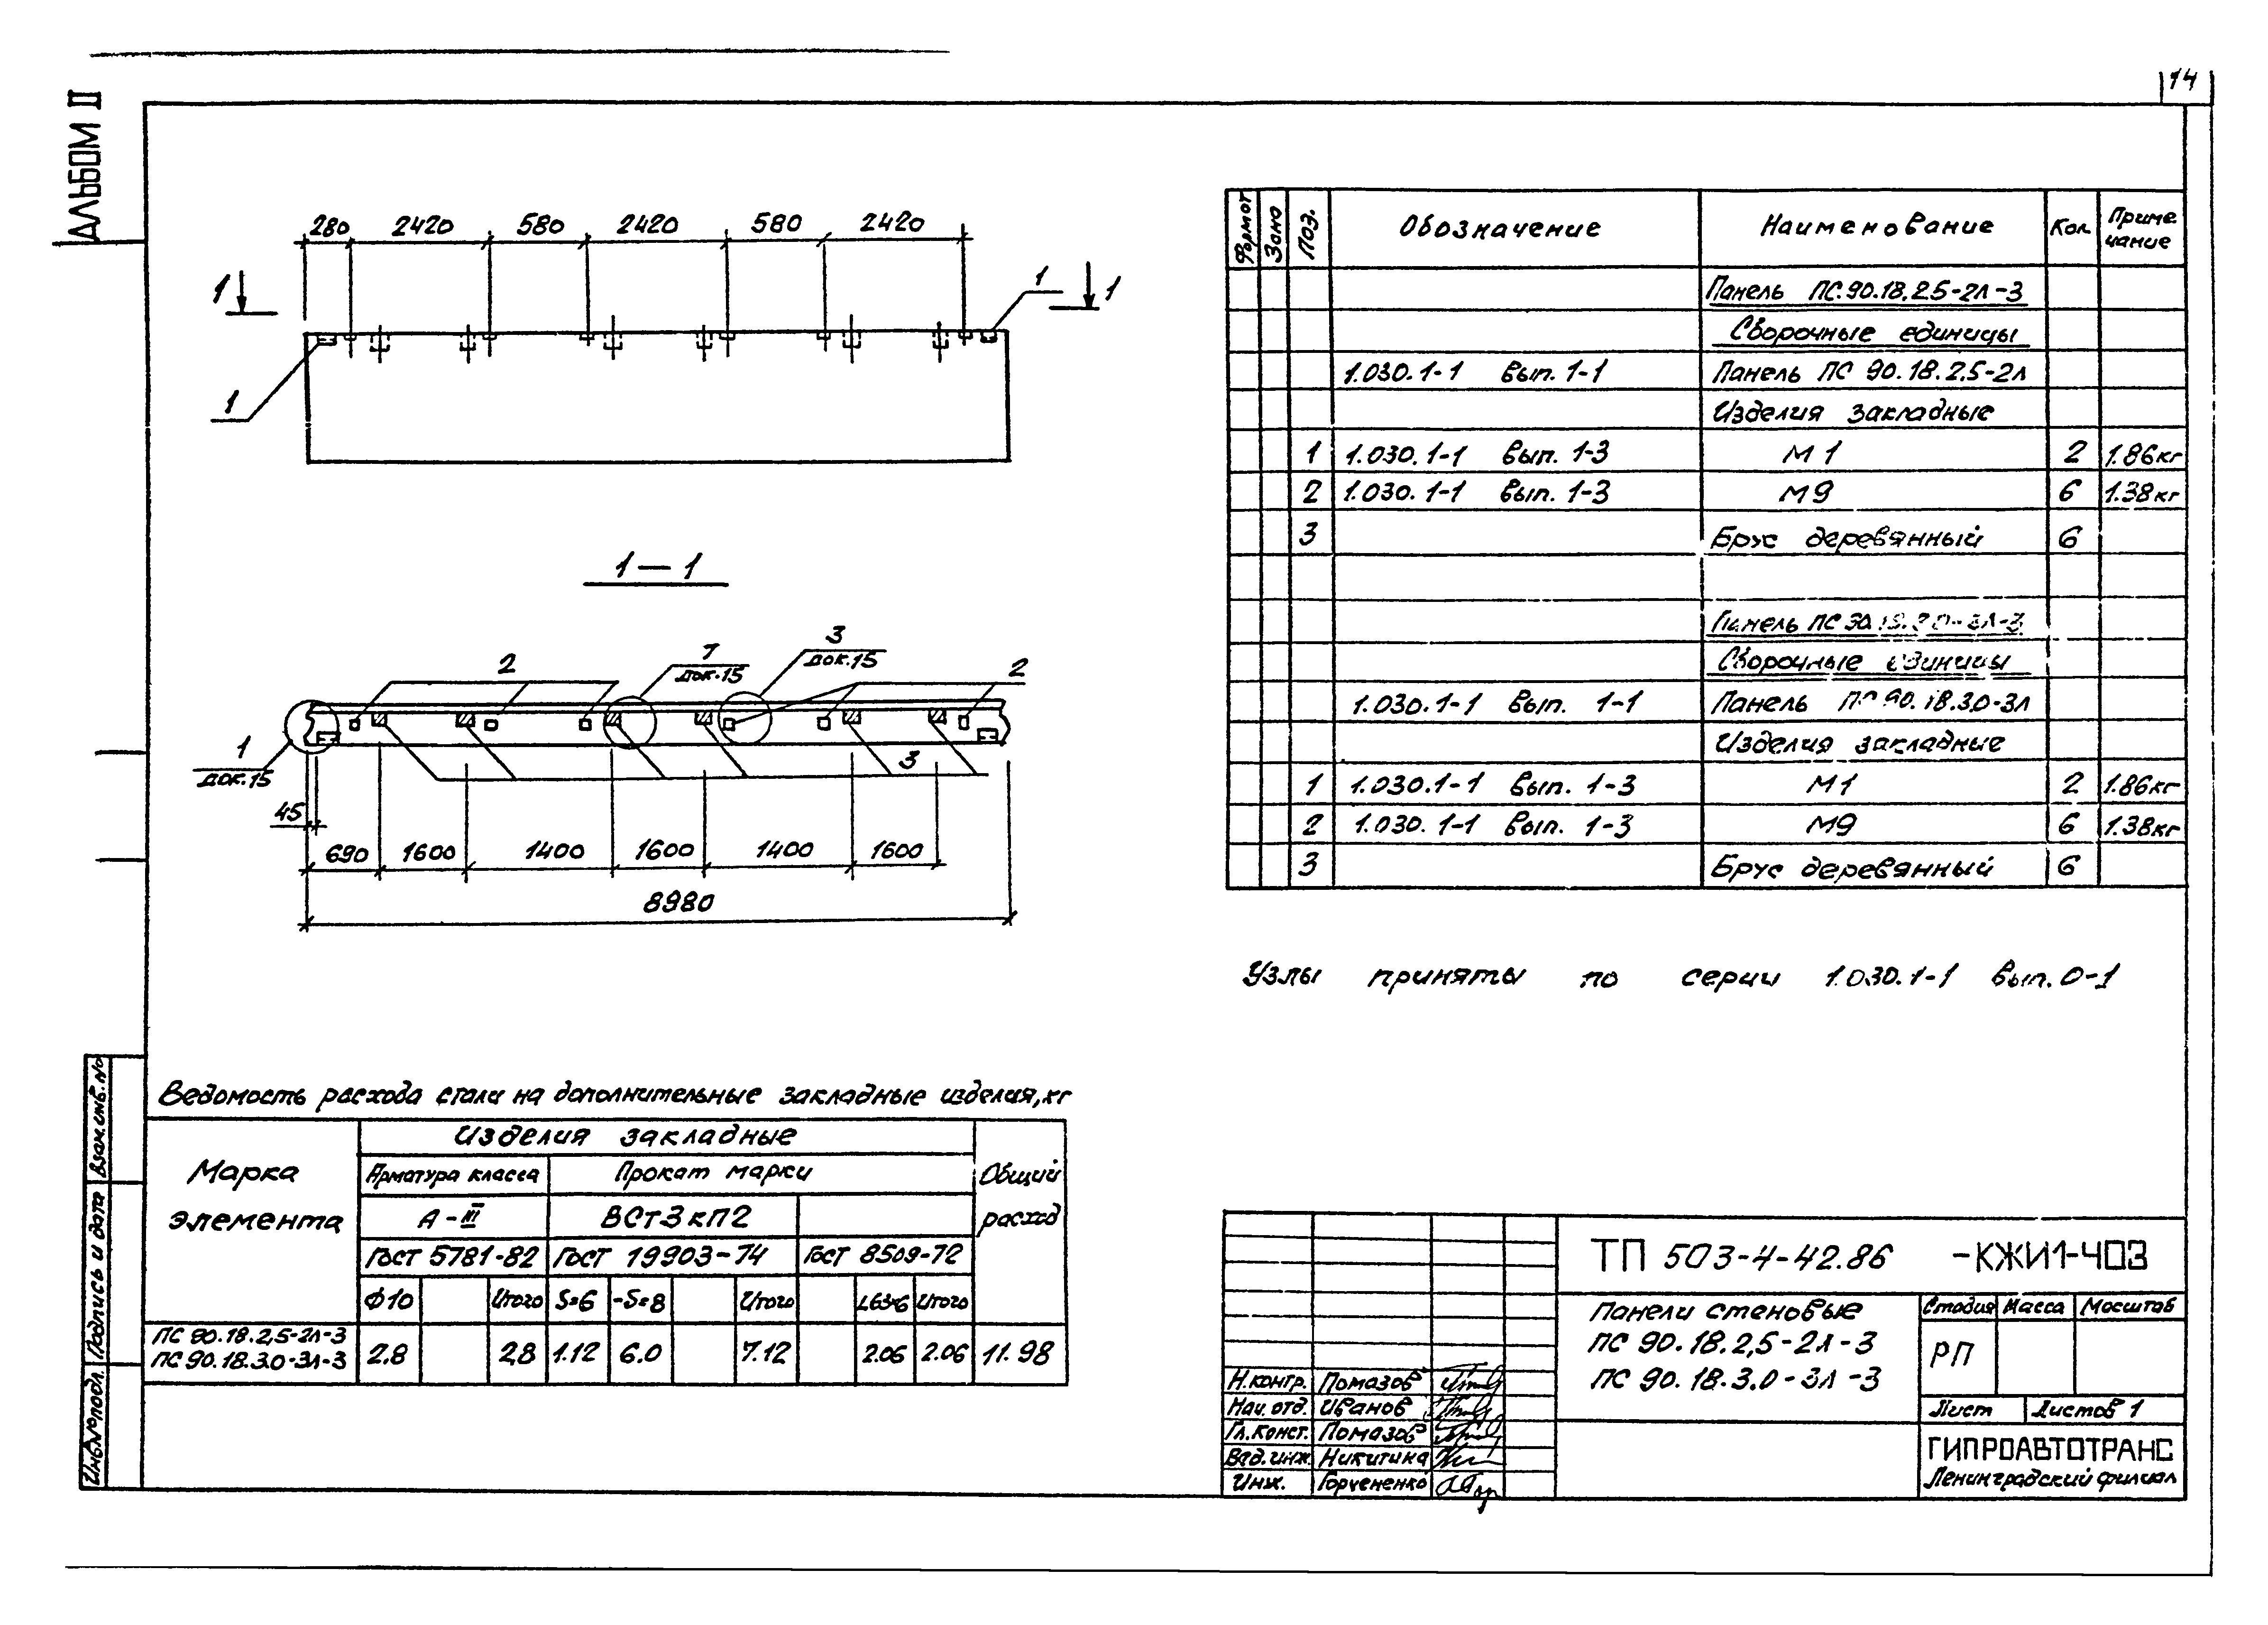 14
АЛЬБОМ II
280 2420 580 2420 580 2420
1 1
1
1
1—1
2 7 док.15 3 док.15 2
1 док.15
3
45
690 1600 1400 1600 1400 1600
8980
Формат Зона Поз. Обозначение Наименование Кол. Приме чание
Панель ПС.90.18.2.5-2л-3
Сборочные единицы
1.030.1-1 Вып. 1-1 Панель ПС 90.18.2,5-2л
Изделия закладные
1 1.030.1-1 Вып. 1-3 М1 2 1.86кг
2 1.030.1-1 Вып. 1-3 М9 6 1.38кг
3 Брус деревянный 6
Панель ПС 90.18.3.0-3л-3
Сборочные единицы
1.030.1-1 Вып. 1-1 Панель ПС 90.18.3.0-3л
Изделия закладные
1 1.030.1-1 Вып. 1-3 М1 2 1.86кг
2 1.030.1-1 Вып. 1-3 М9 6 1.38кг
3 Брус деревянный 6
Узлы приняты по серии 1.030.1-1 Вып. 0-1
Ведомость расхода стали на дополнительные закладные изделия, кг
Марка элемента Изделия закладные Общий расход
Арматура класса Прокат марки
А-III ВСт3кп2
ГОСТ 5781-82 ГОСТ 19903-74 ГОСТ 8509-72
Ф10 Итого S=6 -S=8 Итого L63×6 Итого
ПС 90.18.2,5-2л-3
ПС 90.18.3.0-3л-3 2.8 2.8 1.12 6.0 7.12 2.06 2.06 11.98
Инв.№ подл. Подпись и дата Взам.инв.№
ТП 503-4-42.86 -КЖИ1-403
Панели стеновые
ПС 90.18.2,5-2л-3
ПС 90.18.3.0-3л-3
Стадия Масса Масштаб
РП
Лист Листов 1
ГИПРОАВТОТРАНС
Ленинградский филиал
Н.контр. Помазов
Нач. отд. Иванов
Гл.конст. Помазов
Вед.инж. Никитина
Инж. Горчененко